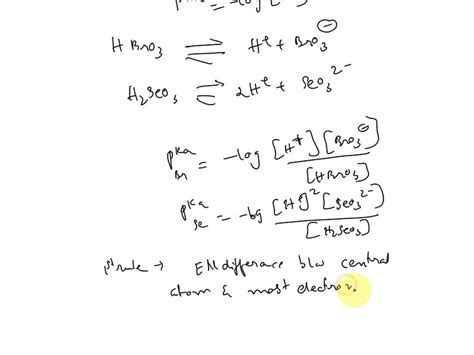 pKa = -log [
HBrO3 ⇌ H⊕ + BrO3⊖
H2SeO3 ⇌ 2H⊕ + SeO3 2-
pKa Br = -log [H+] [BrO3⊖] / [HBrO3]
pKa Se = -log [H+]2 [SeO3 2-] / [H2SeO3]
1st rule → EN differance b/w central
atom & most electron